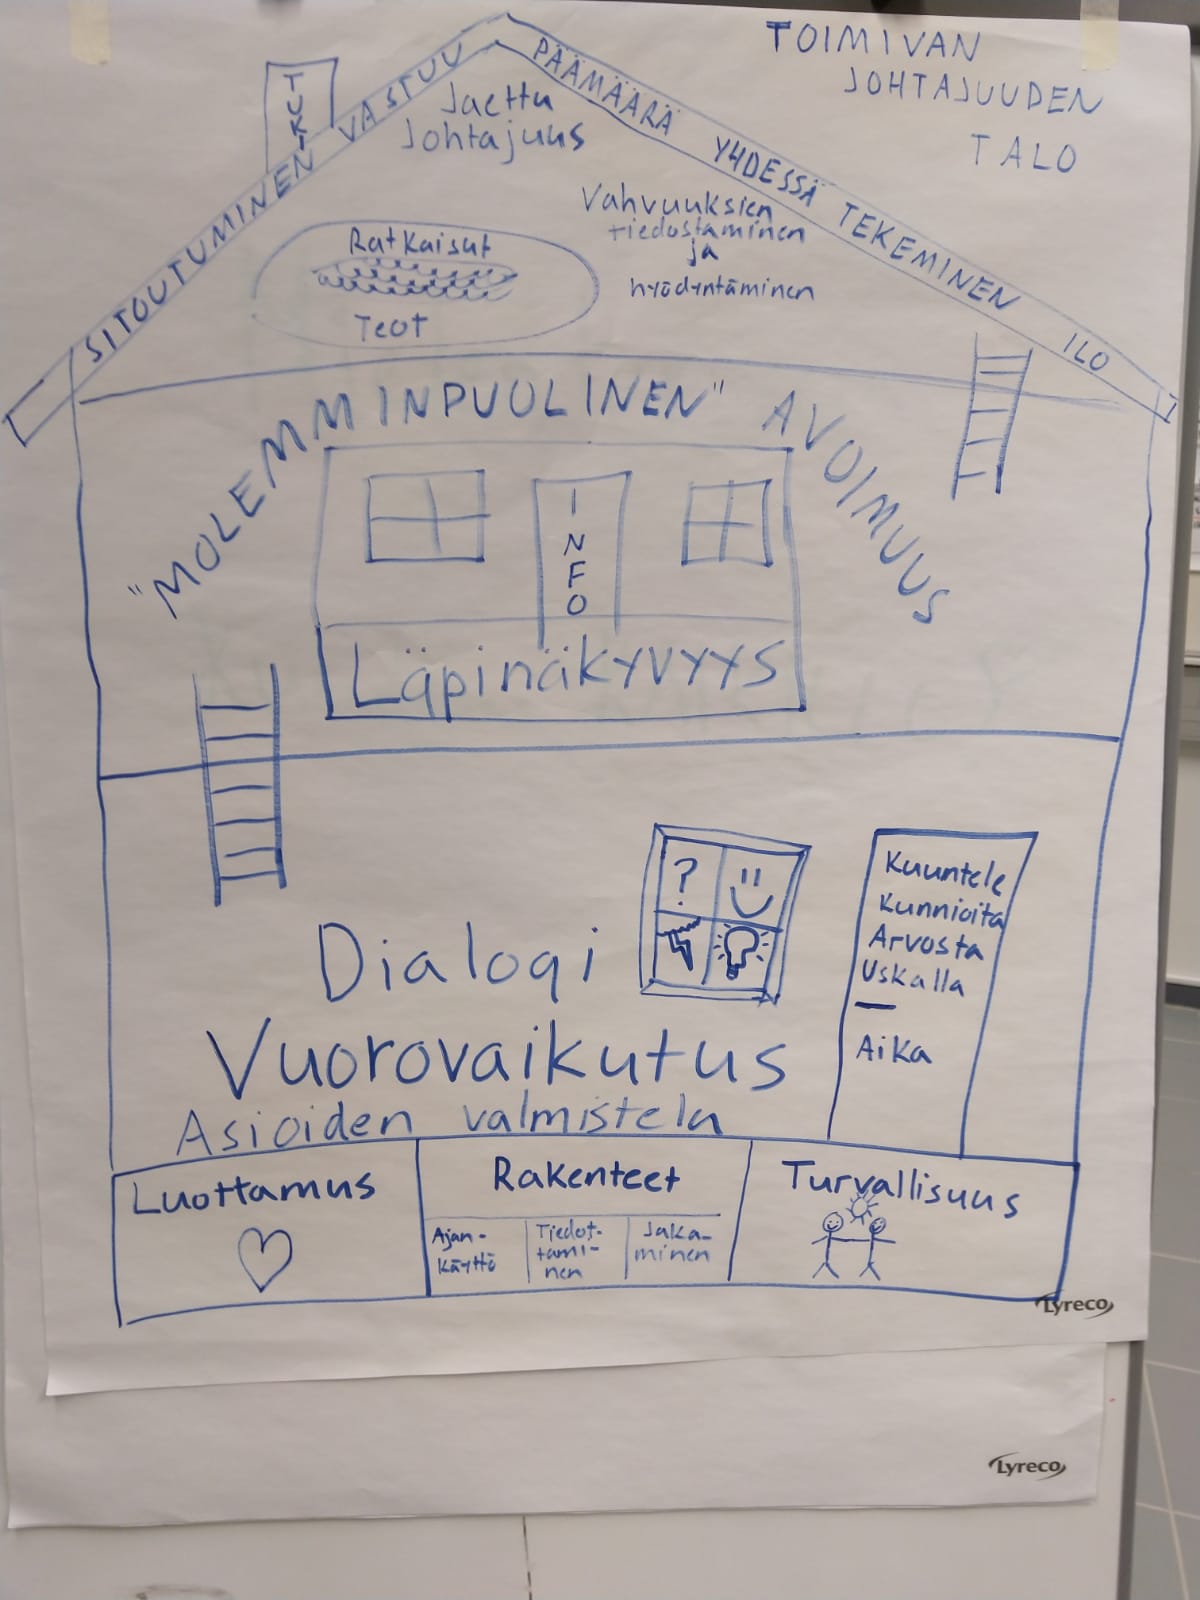 TOIMIVAN
JOHTAJUUDEN
TALO
TUKI
SITOUTUMINEN VASTUU
PÄÄMÄÄRÄ YHDESSÄ TEKEMINEN ILO
Jaettu
Johtajuus
Vahvuuksien
tiedostaminen
ja
hyödyntäminen
Ratkaisut
Teot
"MOLEMMINPUOLINEN" AVOIMUUS
INFO
Läpinäkyvyys
?
Kuuntele
Kunnioita
Arvosta
Uskalla
Aika
Dialogi
Vuorovaikutus
Asioiden valmistelu
Luottamus
Rakenteet
Ajan-
käyttö
Tiedot-
tami-
nen
Jaka-
minen
Turvallisuus
Lyreco
Lyreco